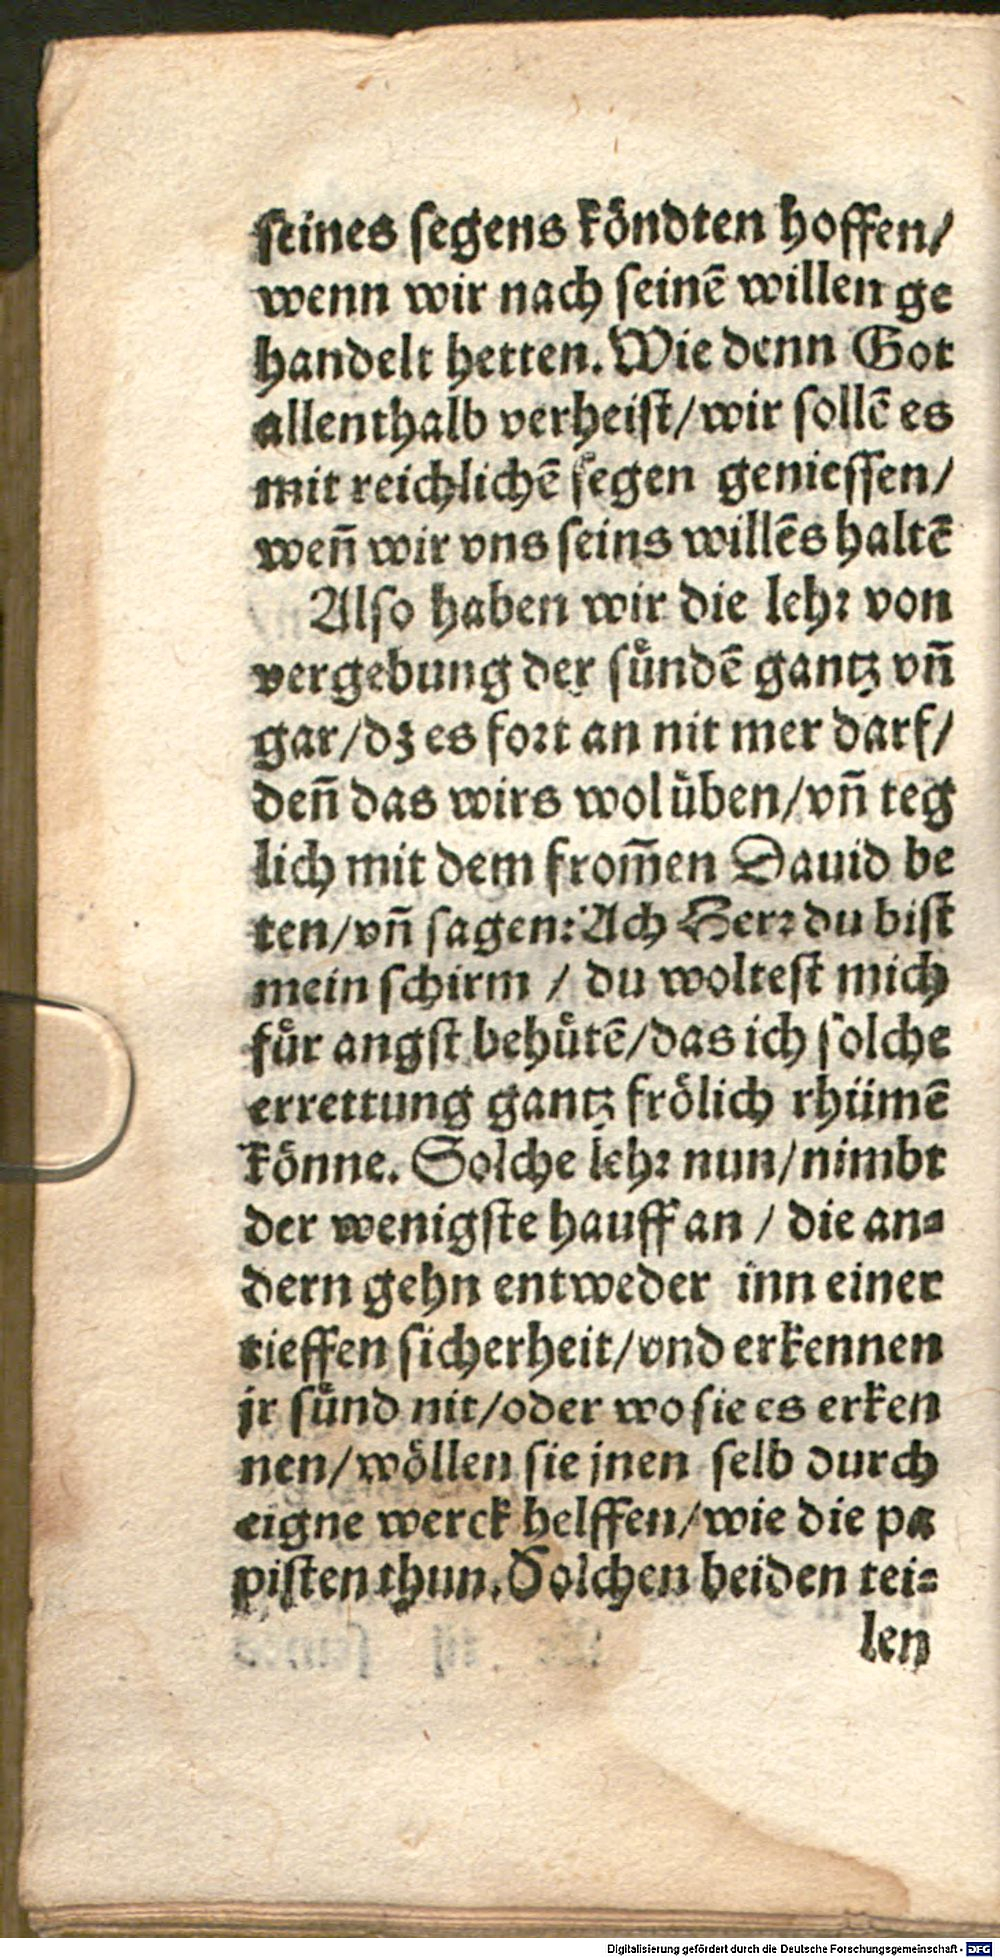 seines segens köndten hoffen/
wenn wir nach seinē willen ge
handelt hetten. Wie denn Got
allenthalb verheist/wir sollē es
mit reichlichē segen geniessen/
weñ wir vns seins willēs haltē
Also haben wir die lehr von
vergebung der sündē gantz vñ
gar/dz es fort an nit mer darf/
deñ das wirs wol üben/vñ teg
lich mit dem from̃en Dauid be
ten/vñ sagen: Ach Herr du bist
mein schirm / du woltest mich
für angst behütē/das ich solche
errettung gantz frölich rhümē
könne. Solche lehr nun/nimbt
der wenigste hauff an / die an-
dern gehn entweder inn einer
tieffen sicherheit/vnd erkennen
jr sünd nit/oder wo sie es erken
nen/wöllen sie jnen selb durch
eigne werck helffen/wie die pa
pisten thun. Solchen beiden tei-
len
Digitalisierung gefördert durch die Deutsche Forschungsgemeinschaft - DFG